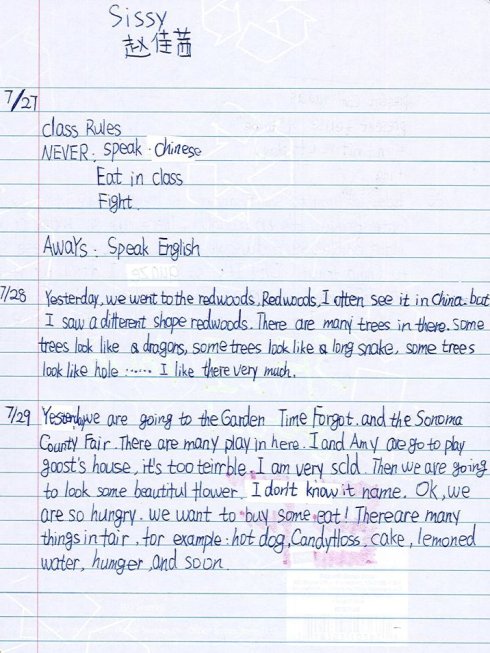 Sissy
赵佳茜
7/27
class Rules
NEVER: speak Chinese
Eat in class
Fight.
Aways: Speak English
7/28 Yesterday, we went to the redwoods. Redwoods, I often see it in China. but
I saw a different shape redwoods. There are many trees in there. some
trees look like a dragons, some trees look like a long snake, some trees
look like hole ...... I like there very much.
7/29 Yesterday we are going to the Garden Time Forgot. and the Sonoma
County Fair. There are many play in here. I and Amy are go to play
goost's house, it's too teirrble. I am very scld. Then we are going
to look some beautiful flower. I don't know it name. Ok, we
are so hungry. we want to buy some eat! There are many
things in fair, for example: hot dog, Candyfloss, cake, lemoned
water, hunger, and soon.